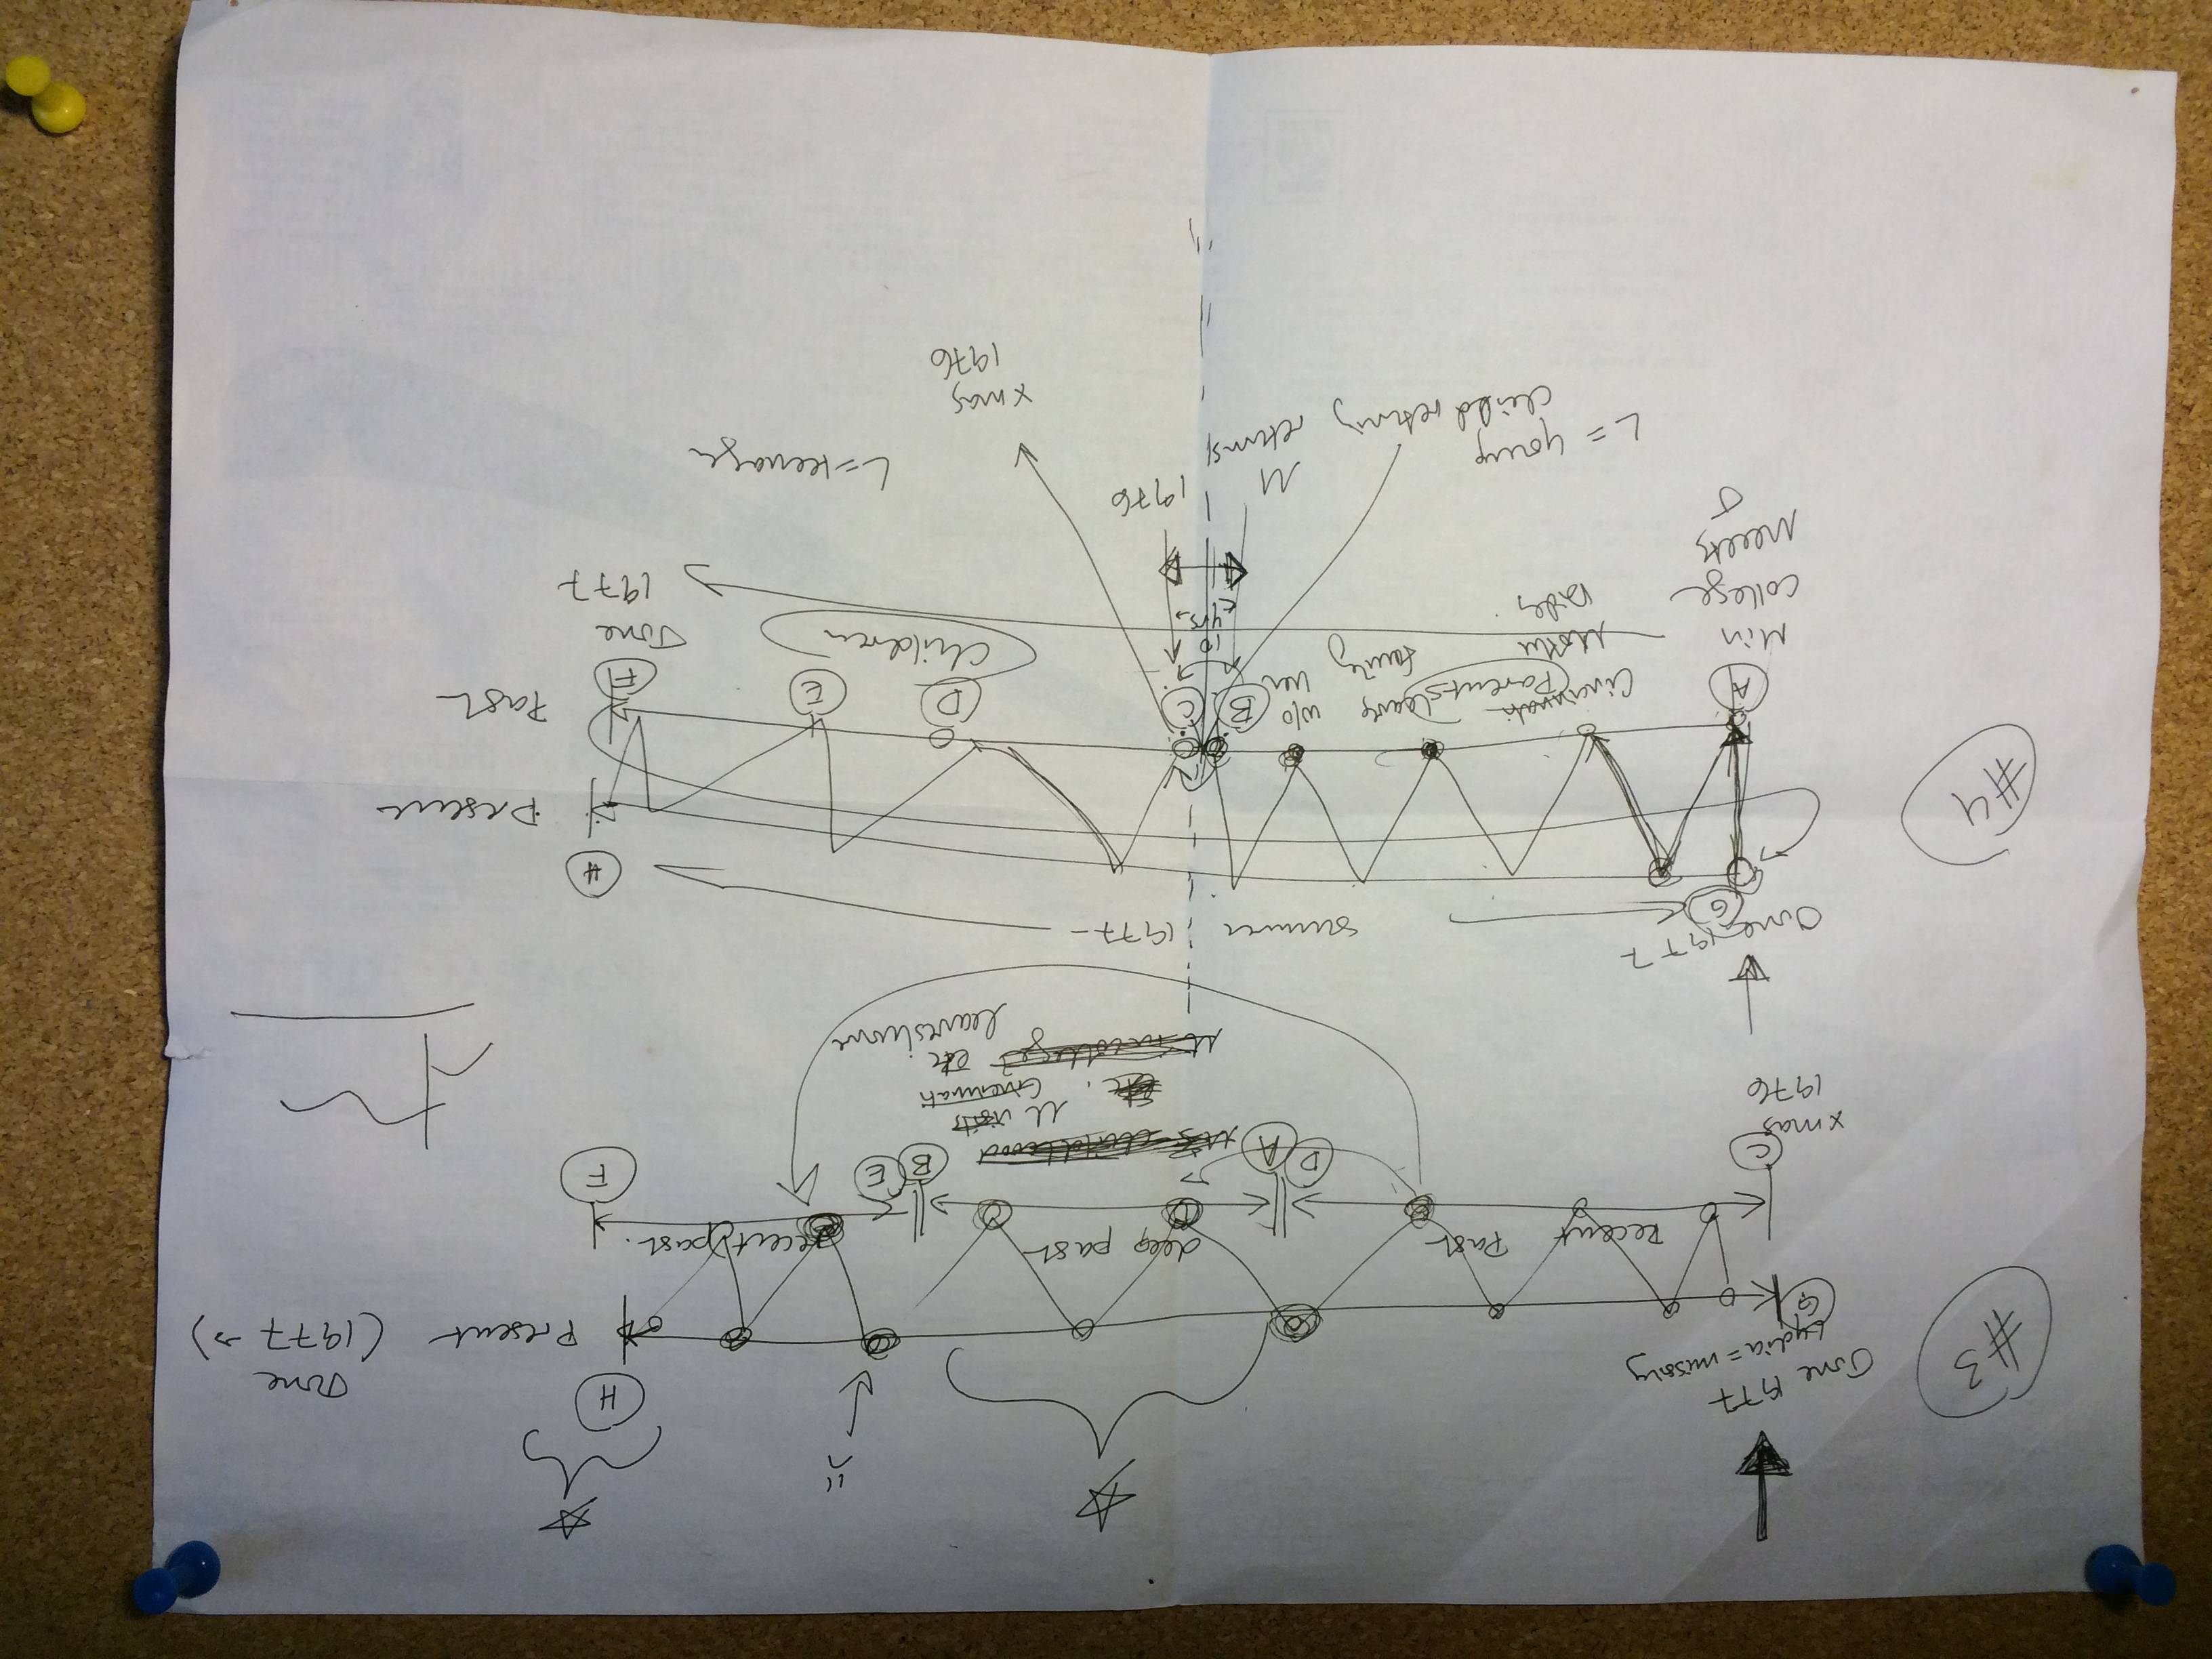 #3
June 1977
Lydia = missing
G
H
June
(1977 →)
Present
C
xmas
1976
Recent
Past
D
A
deep past
B
E
recent past
F
M's childhood
M visits
Cincinnati
etc.
M in college etc
leaves home
#4
June 1977
G
summer 1977 -
H
Present
Past
A
M in
college
meets
J
Cincinnati
Parents leave
Mother
dies
family
w/o
her
B
C
10
yrs.
D
E
Children
F
June
1977
M returns
1976
L = young
child
xmas
1976
L = teenage